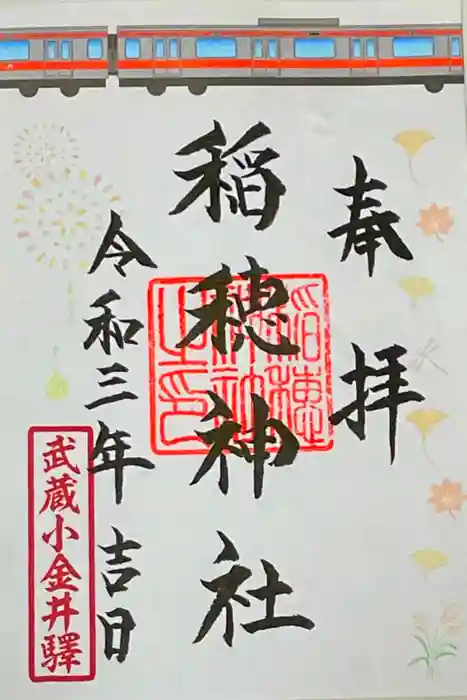 奉拝
稲穂神社
稲穂神社之印
令和三年吉日
武蔵小金井驛